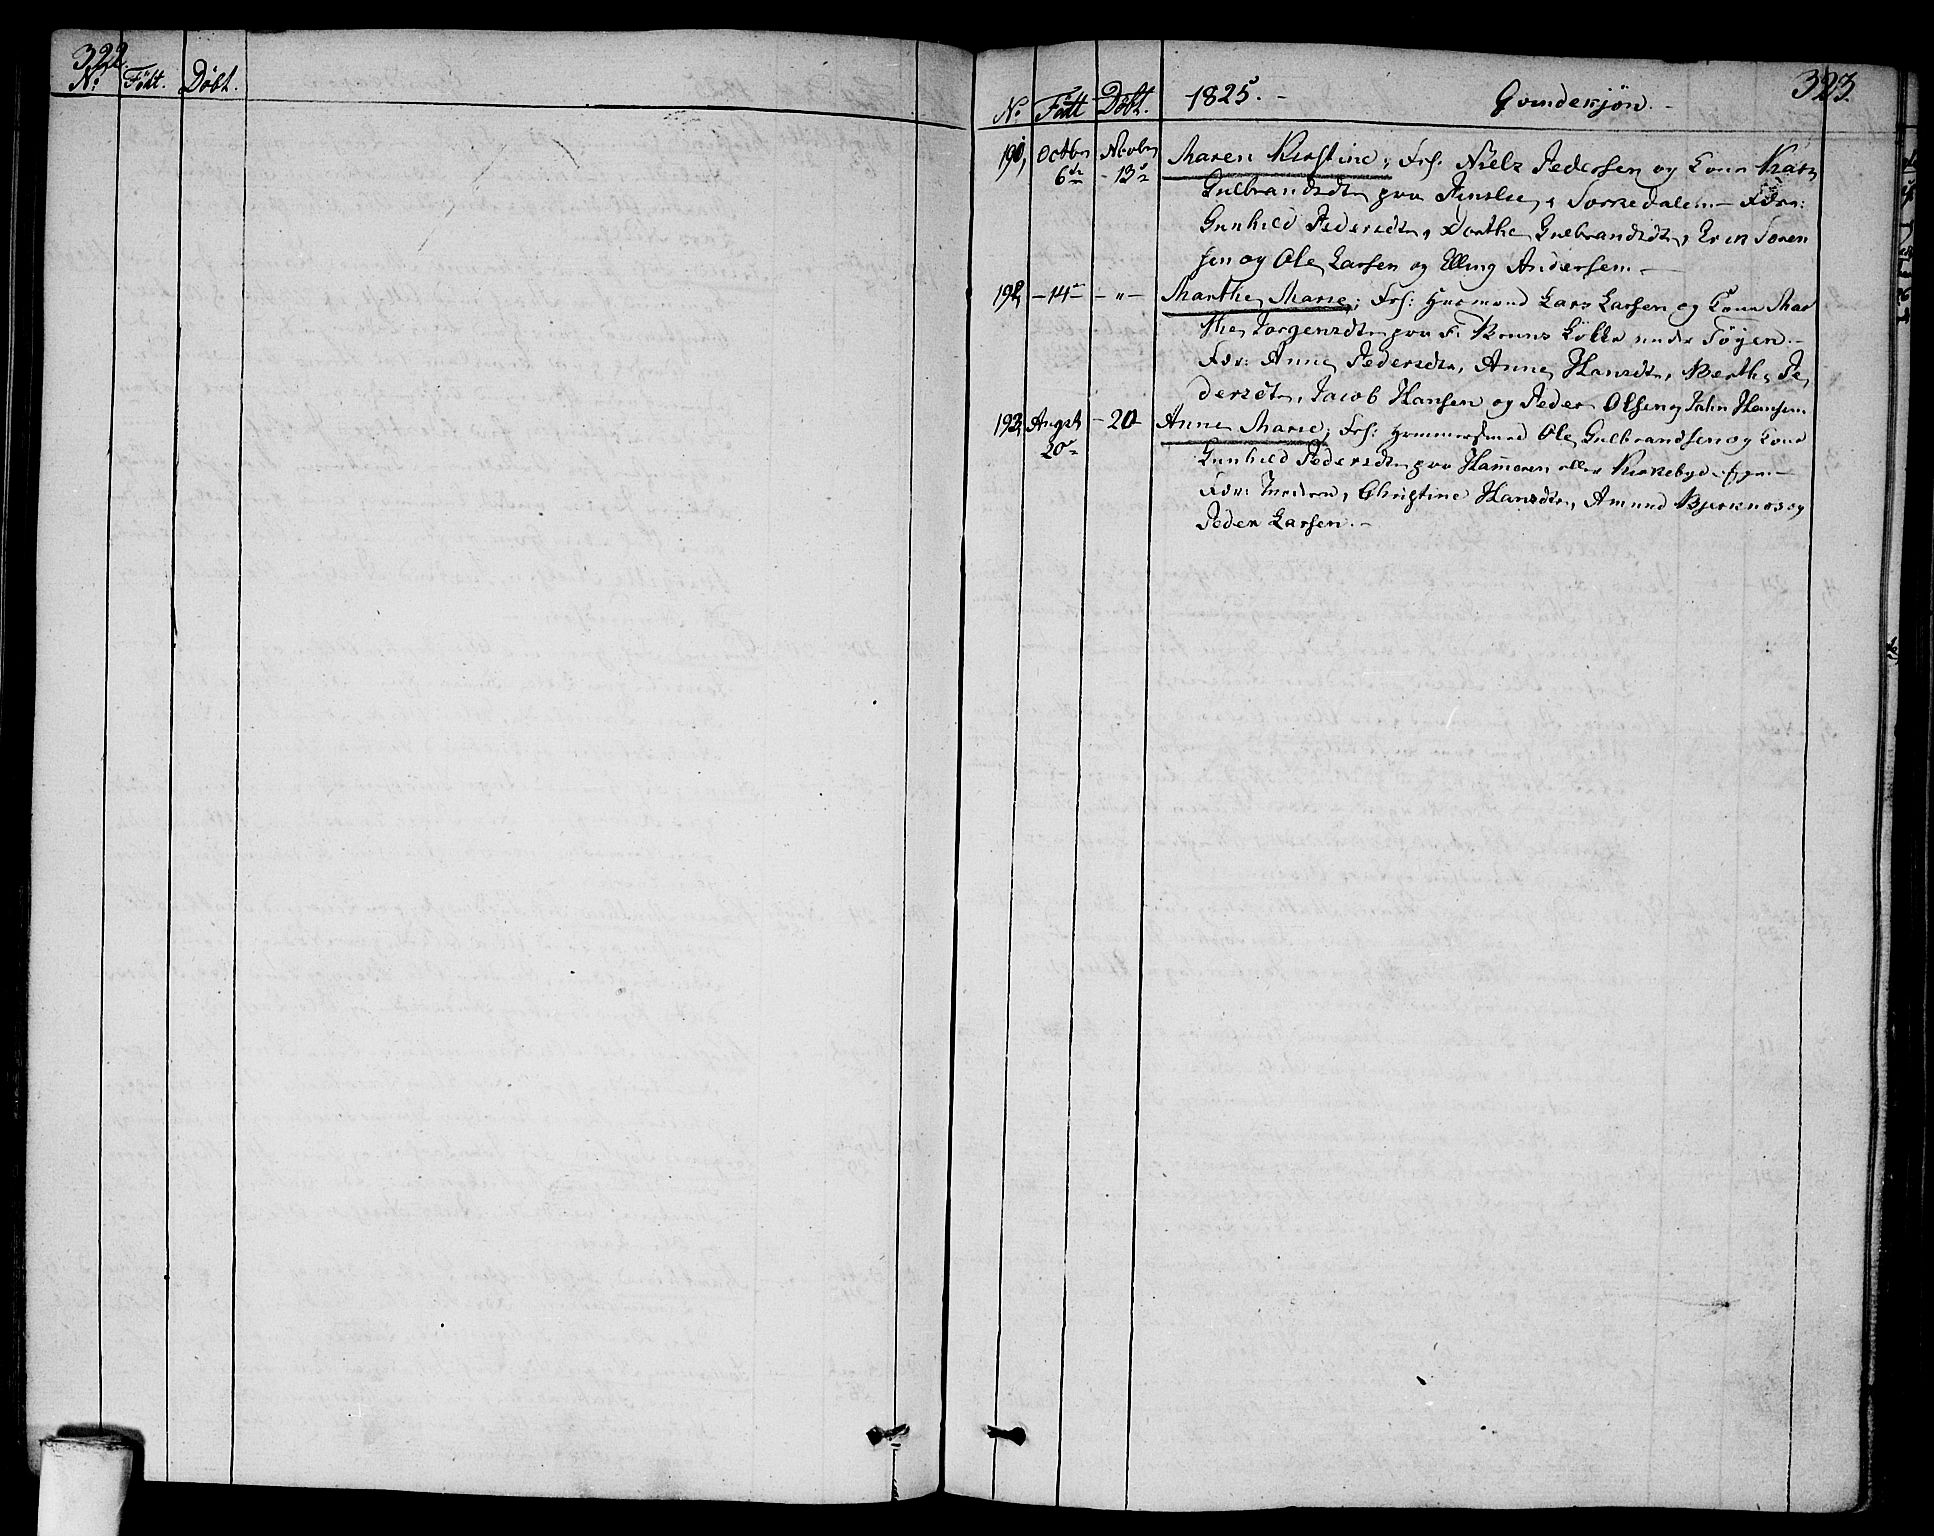 322.
No Födt. Döbt.
323.
No Födt Döbt. 1825. - Qvindekjön. -
191, Octbr Novbr Maren Kirstine, Frs: Niels Pedersen og Kone Kari
6te - 13de Gulbrandsdtr paa Sørkedalen - Fdr:
Gunhild Pedersdtr, Dorthe Gulbrandsdtr, Soren
sen og Ole Larsen og Elling Andersen. -
192, - 14 - - " - Marthe Marie; Frs: Huusmand Lars Larsen og Kone Mar
the Jørgensdtr paa Løkke under Töyen. -
Fdr: Anne Pedersdtr, Anne Hansdtr, Berthe Pe
dersdtr, Jacob Hansen og Peder Olsen John Hansen
193, Augst - 20 - Anne Marie; Frs: Ole Gulbrandsen og Kone
20 Gunhild Pedersdtr paa Hammeren eller Kirkebye
Fdr: Christine Hansdtr, Amund Bjerknes og
Peder Larsen. -